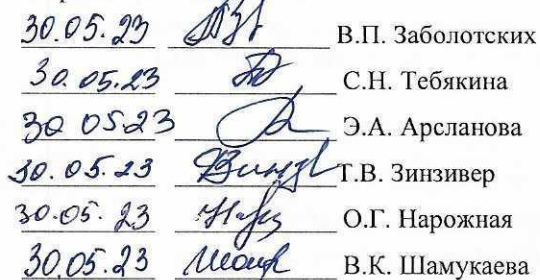 30.05.23 В.П. Заболотских
30.05.23 С.Н. Тебякина
30 05 23 Э.А. Арсланова
30.05.23 Т.В. Зинзивер
30.05.23 О.Г. Нарожная
30.05.23 В.К. Шамукаева